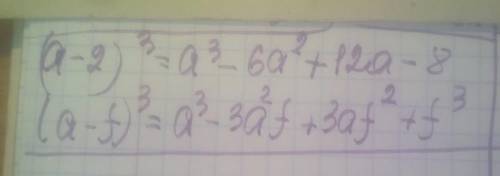 (a-2)³=a³-6a²+12a-8
(a-f)³=a³-3a²f+3af²+f³